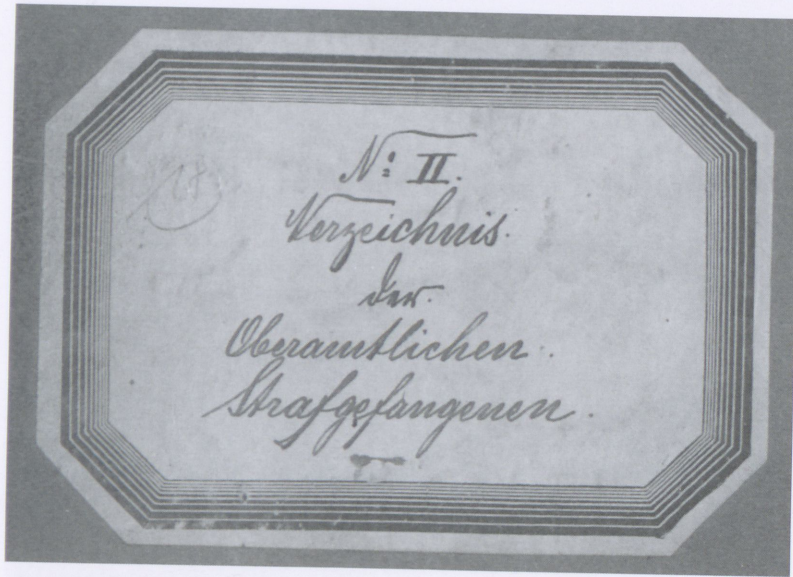 No: II.
Verzeichnis.
der.
Oberamtlichen.
Strafgefangenen.